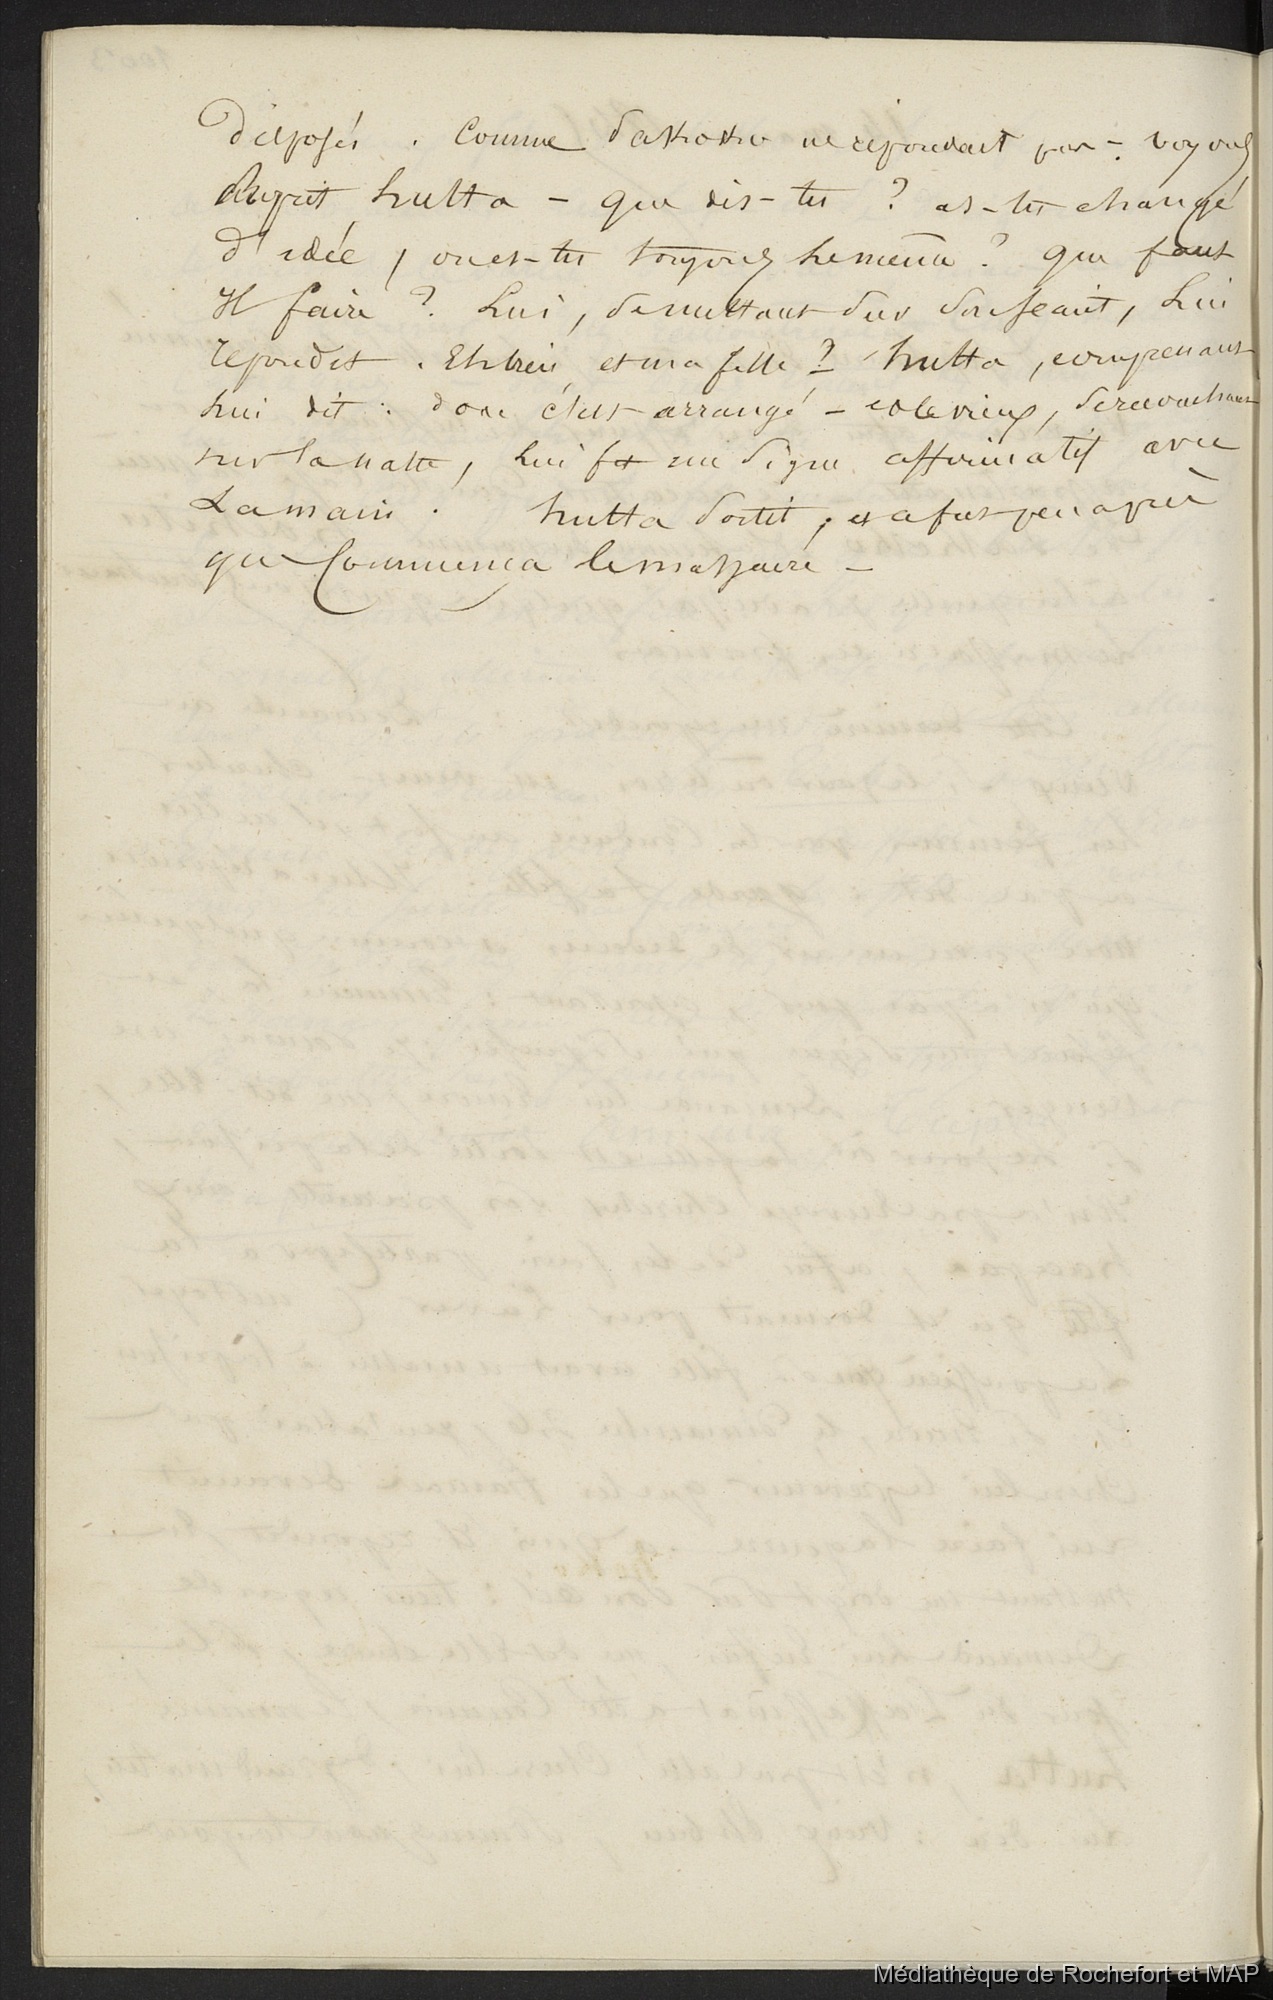 disposés . Comme ne repondait pas -. voyons
Reprit hutta - que dis-tu ? as-tu changé
d'idée , ou es-tu toujours le même ? que faut
Il faire ? Lui , se mettant sur son séant , Lui
repondit . Eh bien et ma fille ? hutta , comprenant
Lui dit : donc c'est arrangé - et le vieux , se recouchant
sur la natte , Lui fit un signe affirmatif avec
La main . hutta sortit , et ce fut peu après
que Commença le massacre -
Médiathèque de Rochefort et MAP